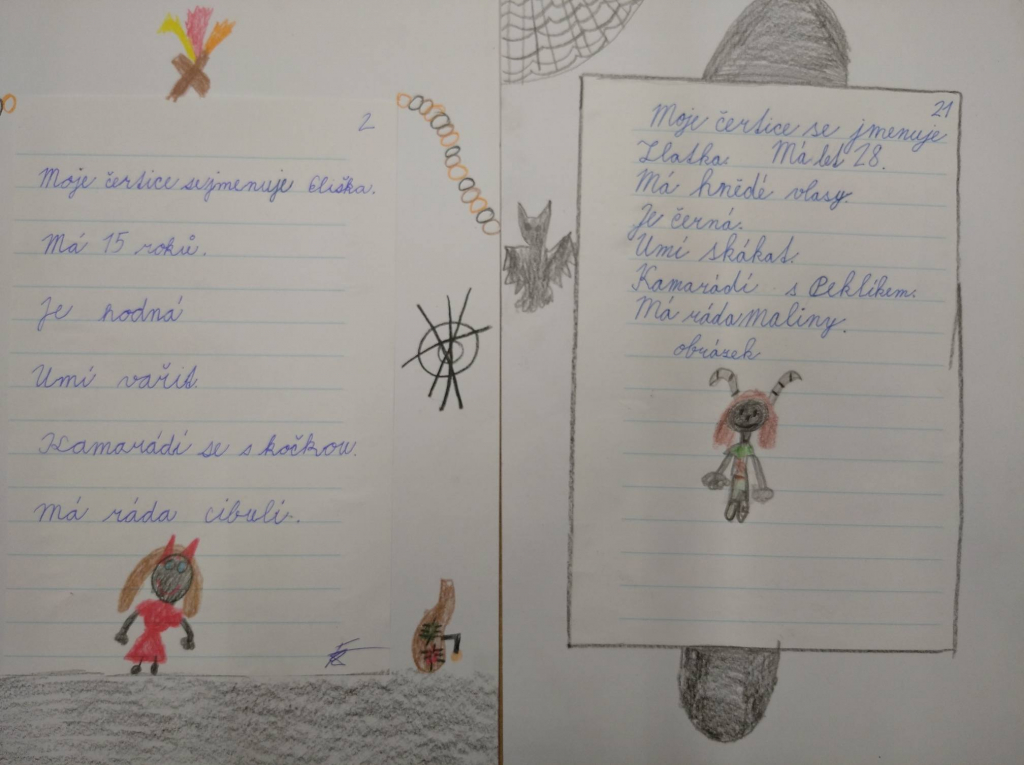 2
Moje čertice se jmenuje Eliška.
Má 15 roků.
Je hodná
Umí vařit.
Kamarádí se s kočkou.
Má ráda cibuli.
21
Moje čertice se jmenuje
Zlatka. Má let 18.
Má hnědé vlasy.
Je černá.
Umí skákat.
Kamarádí s Peklíkem.
Má ráda maliny.
obrázek